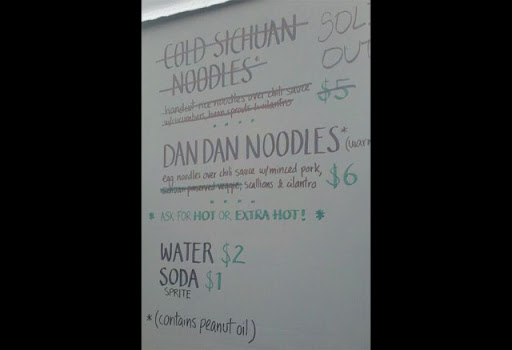 COLD SICHUAN SOL
NOODLES* OUT
handcut rice noodles over chili sauce $5
w/cucumber, bean sprouts & cilantro
DAN DAN NOODLES* (warm
egg noodles over chili sauce w/minced pork,
sichuan preserved veggie, scallions & cilantro $6
* ASK FOR HOT OR EXTRA HOT! *
WATER $2
SODA $1
SPRITE
*(contains peanut oil)